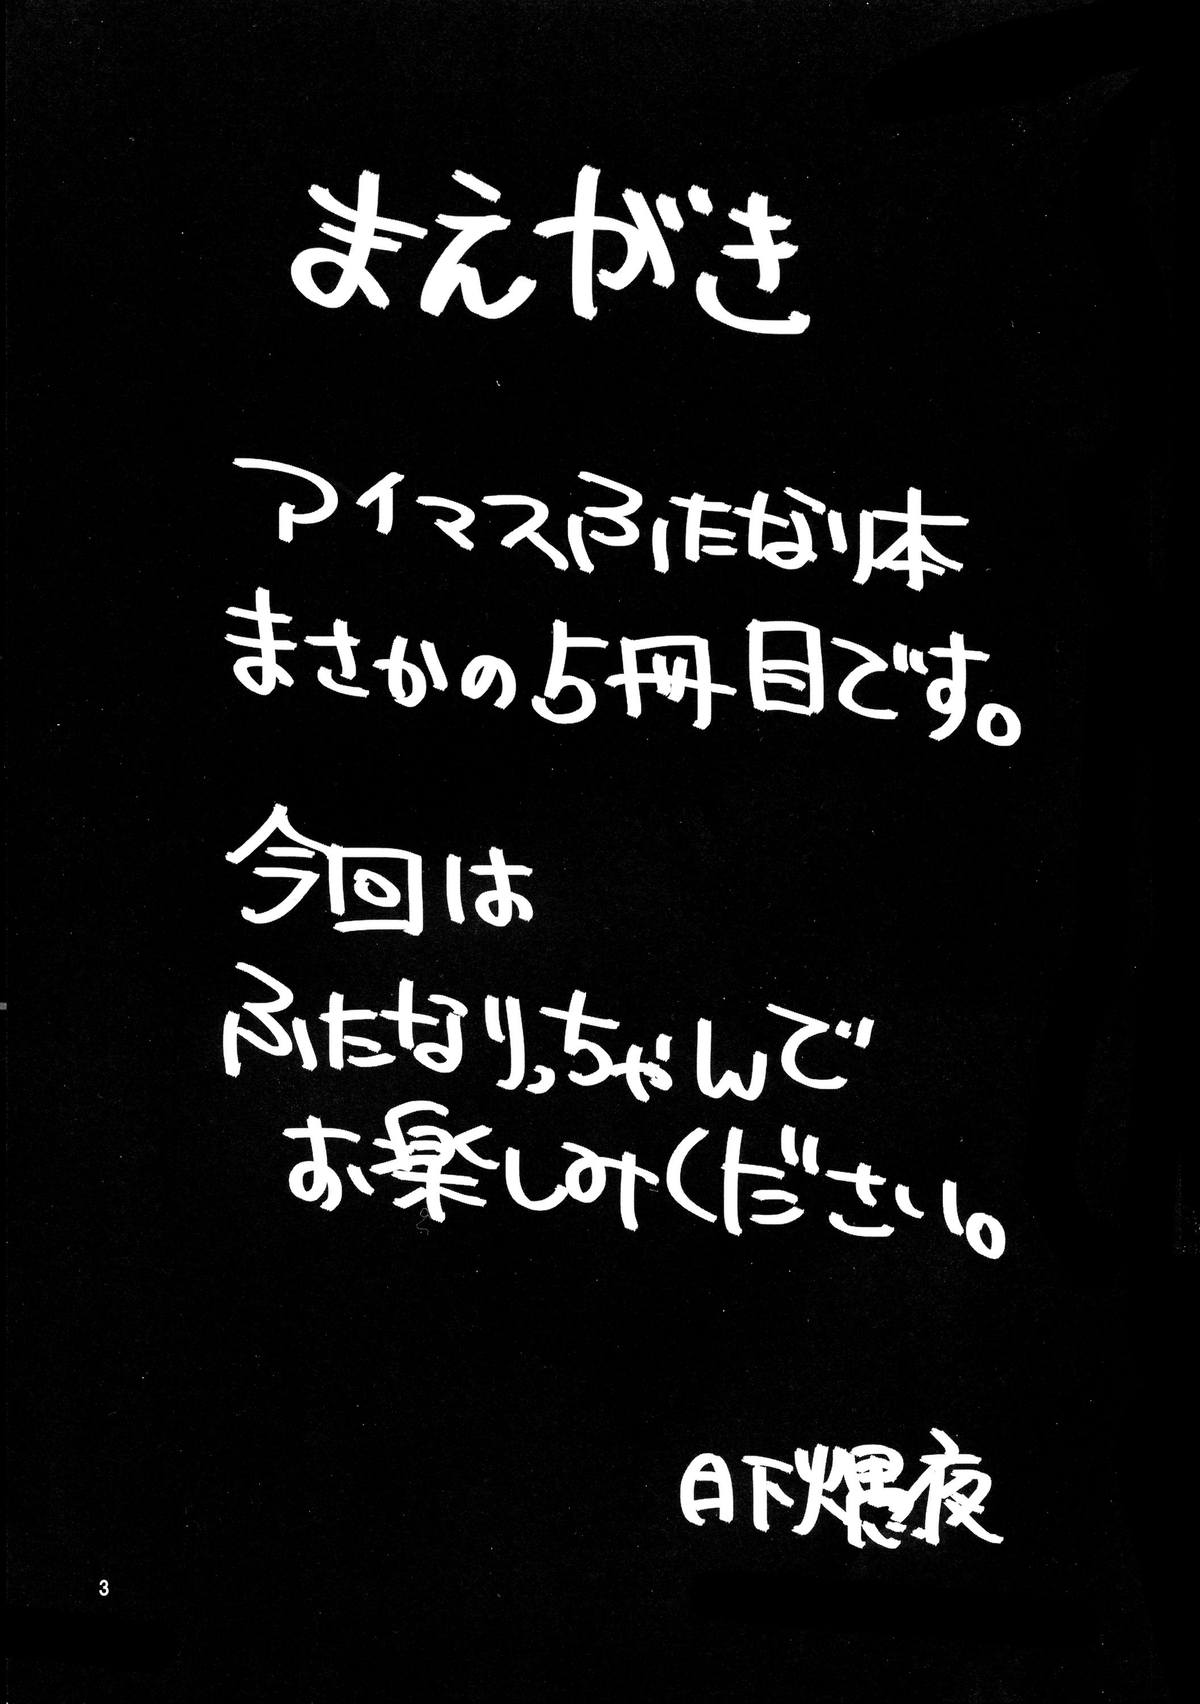 まえがき
アイマスふたなり本
まさかの5冊目です。
今回は
ふたなりっちゃんで
お楽しみください。
日下燠夜
3